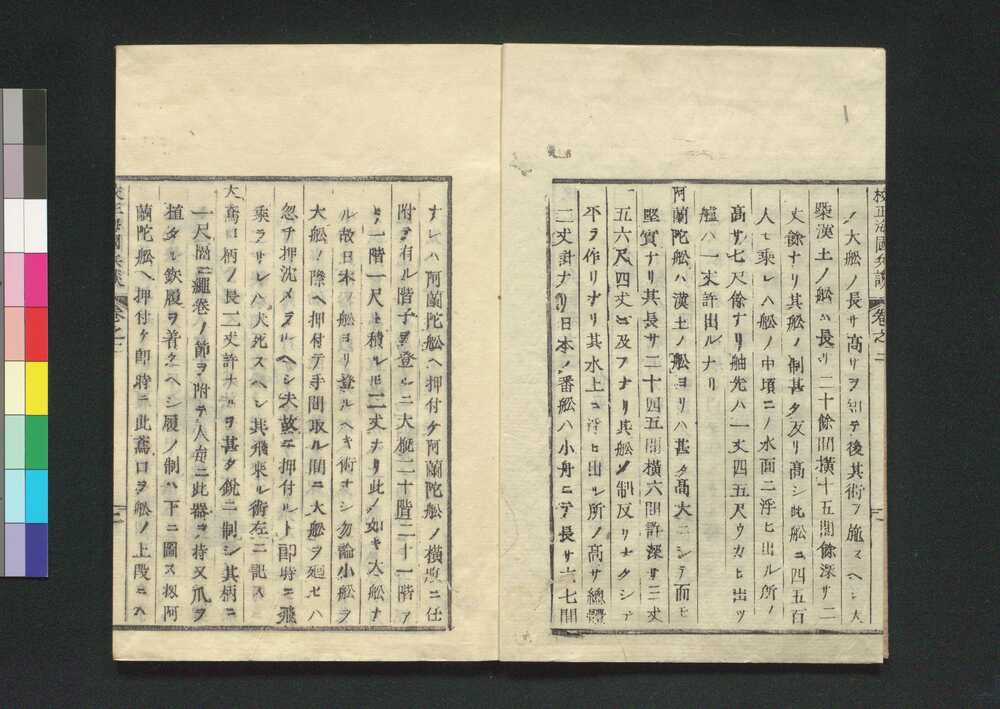 校正海國兵談 卷之二
ノ大舩ノ長サ高サヲ知テ後其術ヲ施スヘシ大
槩漢土ノ舩ハ長サ二十餘間横十五間餘深サ二
丈餘ナリ其舩ノ制甚タ反リ高シ此舩ニ四五百
人モ乗レハ舩ノ中頃ニノ水面ニ浮ヒ出ル所ノ
高サ七尺餘ナリ舳先ハ一丈四五尺ウカヒ出ツ
艫ハ一丈許出ルナリ
阿蘭陀舩ハ漢土ノ舩ヨリハ甚タ高大ニシテ而モ
堅實ナリ其長サ二十四五間横六間許深サ三丈
五六尺四丈ニ及フナリ其舩ノ制反リナクシテ
平ヲ作リナリ其水上ニ浮ヒ出シ所ノ高サ總體
二丈計ナリ日本ノ番舩ハ小舟ニテ長サ六七間
ナレハ阿蘭陀舩ヘ押付ケ阿蘭陀舩ノ横腹ニ仕
附テ有ル階子ヲ登ルニ大概二十階二十一階ア
リ一階一尺ト積ル圧二丈ナリ此ノ如キ大舩ナ
ル故日本ノ舩ヨリ登ルヘキ術ナシ勿論小舩ヲ
大舩ノ際ヘ押付テ手間取ル間ニ大舩ヲ廻セハ
忽チ押沈メラルヘシ夫故ニ押付ルト即時ニ飛
乗ラサレハ犬死スヘシ其飛乗ル術左ニ記ス
大鳶口柄ノ長二丈許ナルヲ甚タ鋭ニ制シ其柄ニ
一尺間ニ繩卷ノ節ヲ附テ人每ニ此器ヲ持又爪ヲ
植タル欽履ヲ着タヘシ履ノ制ハ下ニ圖ス扨阿
蘭陀舩ヘ押付ケ即時ニ此鳶口ヲ舩ノ上段ニ
校正海國兵談 卷之二